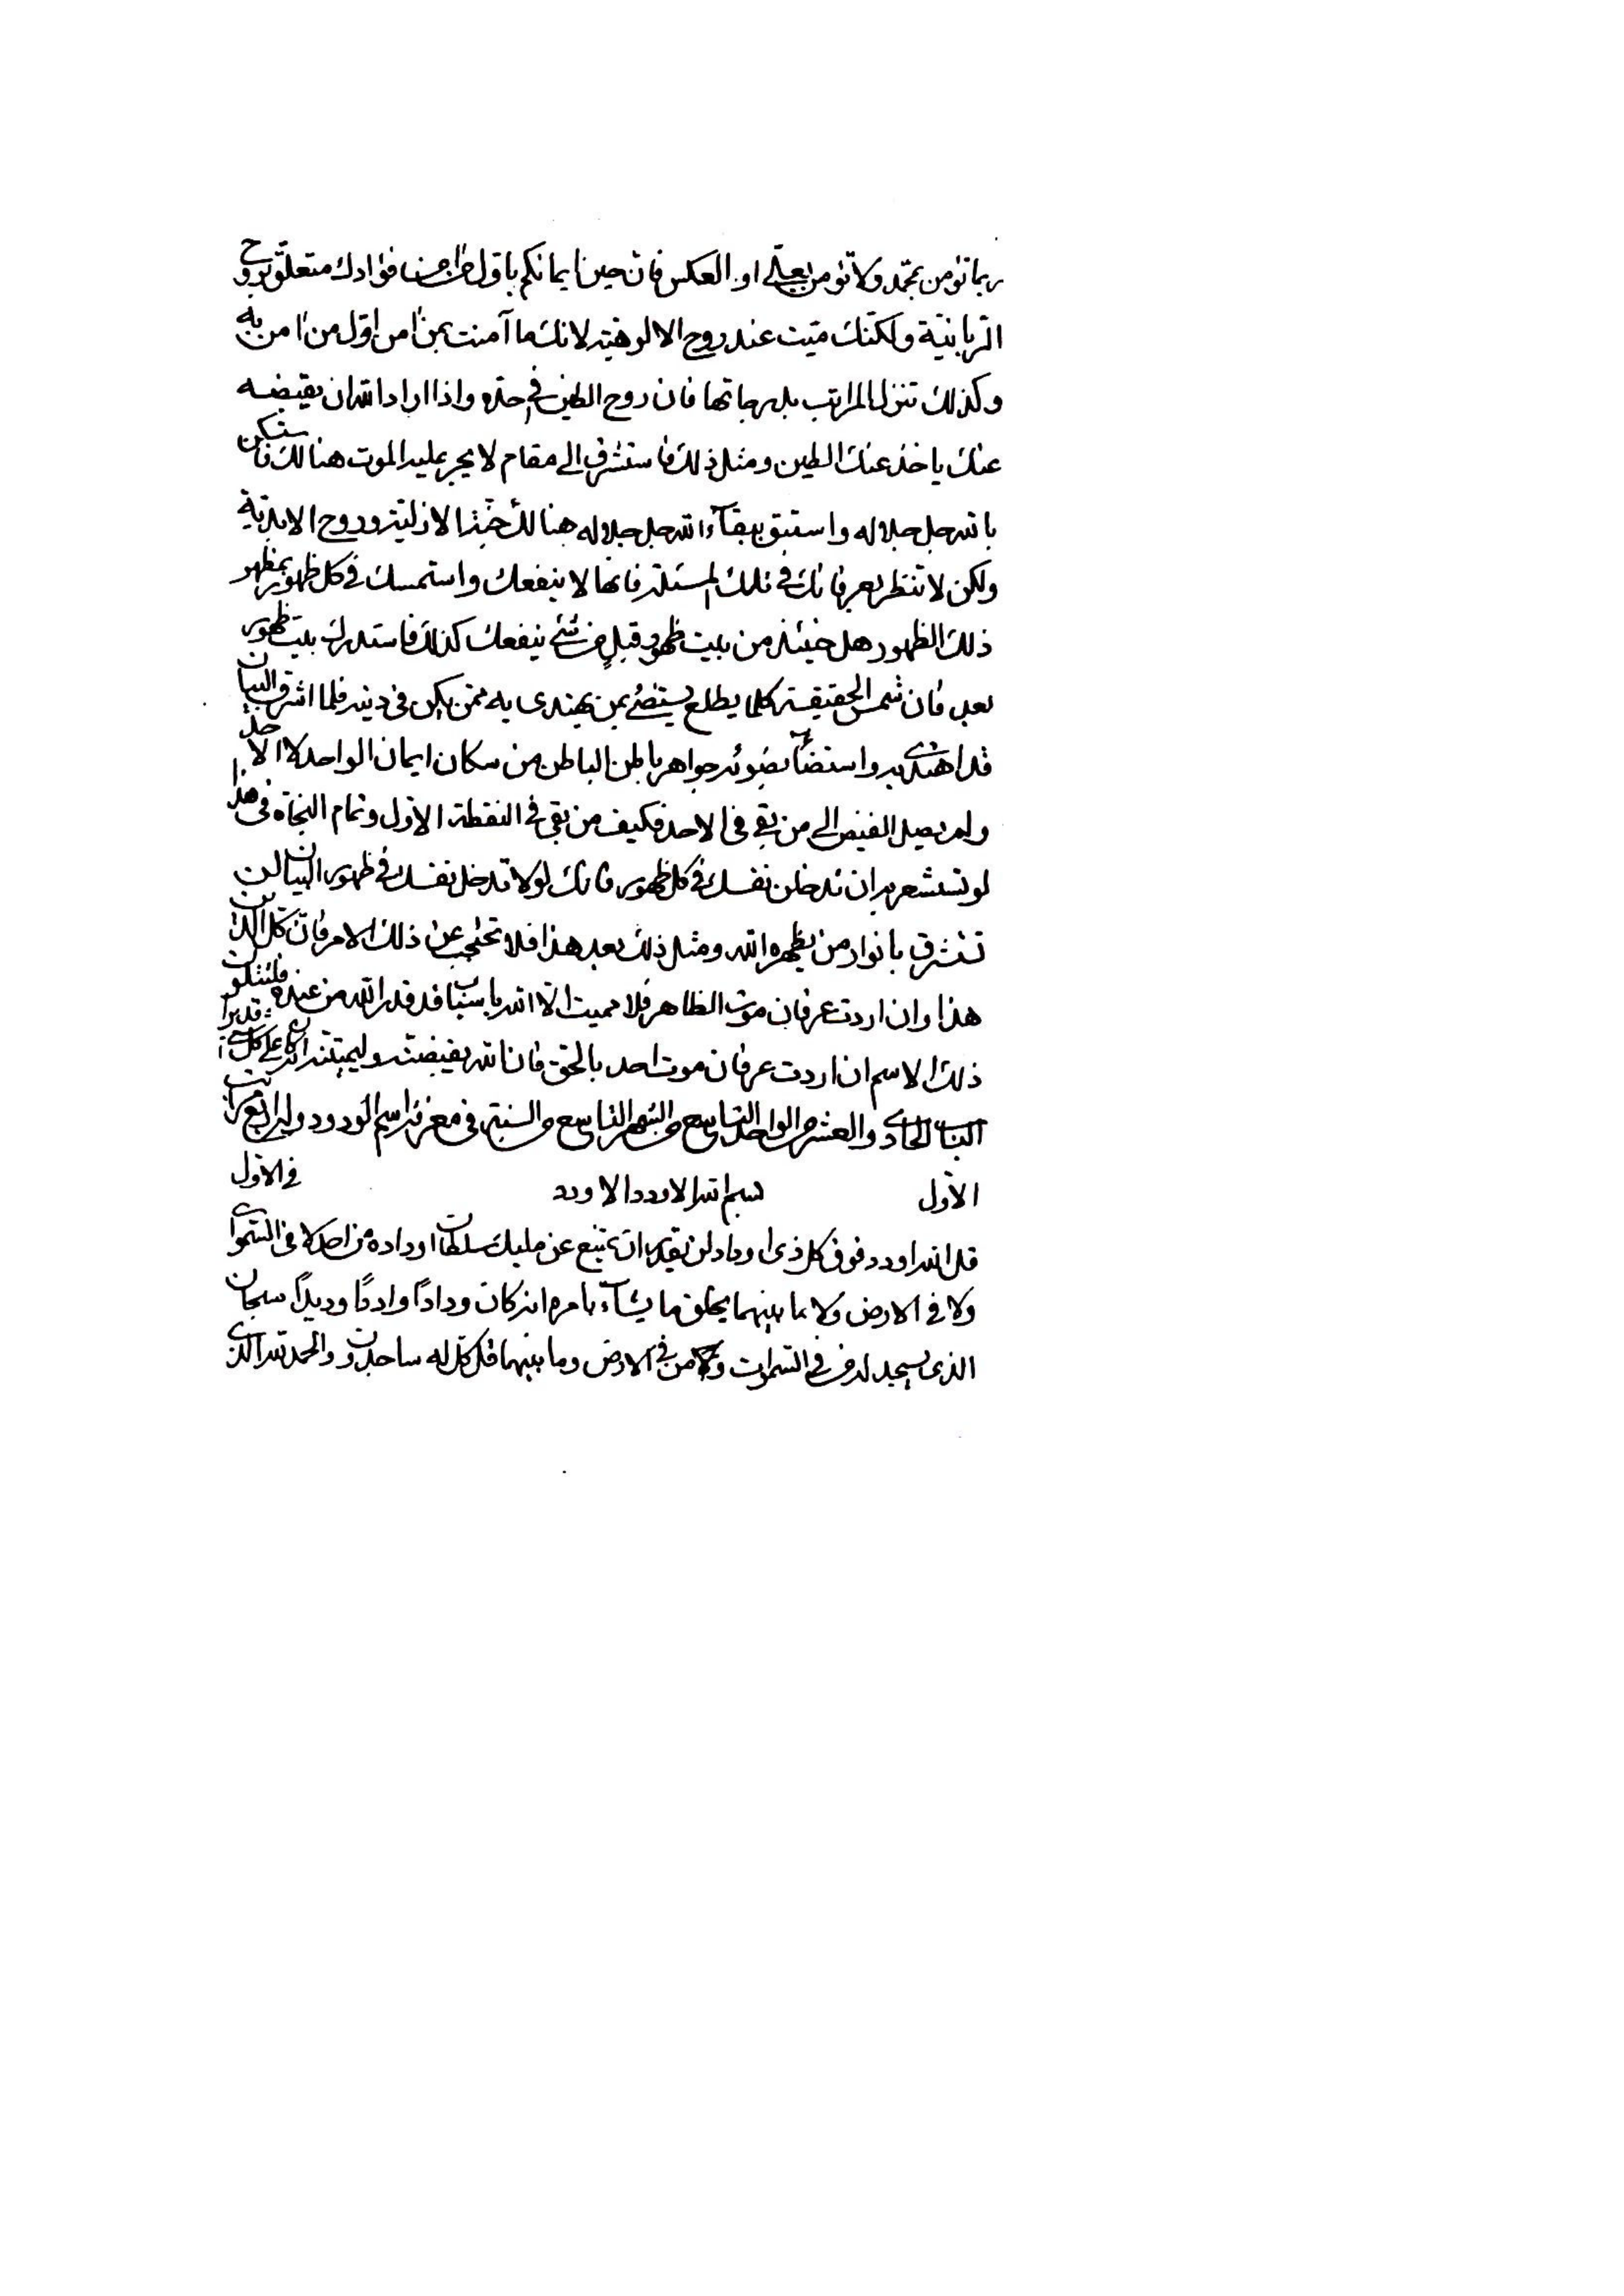 ربما تؤمن بمحمد ولا تؤمن بعلي او بالعكس فان حين ايمانكم باول من امن فؤادك متعلق بروح
الربانية ولكنك ميت عند روح الالوهية لانك ما آمنت بمن امن اول من امن به
وكذلك تنزل المراتب بدرجاتها فان روح الطين في حده واذا اراد الله ان يقبضه
عنك ياخذ عنك الطين ومثل ذلك فاستشرق الى مقام لا يجر عليه الموت هنالك فاستمسكن
بالله جل جلاله واستبق ببقآء الله جل جلاله هنالك الازلية وروح الابدية
ولكن لا تنظر بعرفانك في تلك المسئلة فانها لا ينفعك واستمسك في كل ظهور بمظهر
ذلك الظهور هل حينئذ من بيت ظهور قبل من شئ ينفعك كذلك فاستدرك بيت ظهور
بعد فان شمس الحقيقة كلما يطلع يستضئ بمن يهتدى به ممن يكن في دينه فلما اشرق البيان
قد اهتدى به واستضآء بضوئه جواهر باطن الباطن من سكان ايمان الواحد لا الاحد
ولم يصل الفيض الى من بقي في الاحد فكيف من بقي في النقطة الاول وتمام النجاة في هذا
لو تستشعر به ان تدخلن نفسك في كل ظهور فانك لو لا تدخل نفسك في ظهور البيان لن
تشرق بانوار من يظهره الله ومثل ذلك بعد هذا فلا تحتجب عن ذلك الامر فان كل الدين
هذا وان اردت عرفان موت الظاهر فلا مميت الا الله باسباب قد قدر الله من عنده فلتتلون
ذلك الاسم ان اردت عرفان موت احد بالحق فان الله يقبضنه وليميتنه انه كان على كل شئ قديرا
الباب الحادي والعشر من الواحد التاسع من الشهر التاسع من السنة في معرفة اسم الودود وله اربع مراتب
الاول بسم الله الاودد الاودد في الاول
قل الله اودد فوق كل ذى اوداد لن يقدر ان يمتنع عن مليك سلطان اوداده من احد لا في السموات
ولا في الارض ولا ما بينهما يخلق ما يشآء بامره انه كان ودادًا وادًا وديدًا سبحان
الذى يسجد له من في السموات ومن في الارض وما بينهما قل كل له ساجدون والحمد لله الذى